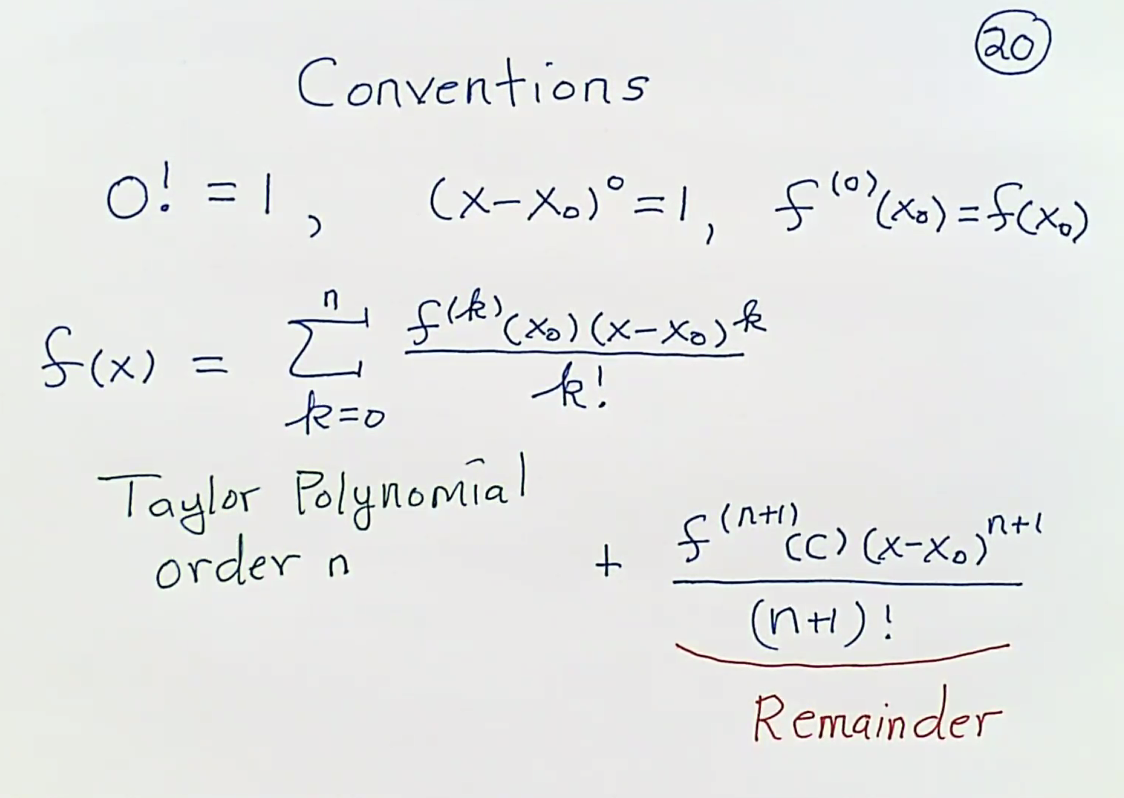 20
Conventions
0! = 1, (x-x₀)⁰ = 1, f⁽⁰⁾(x₀) = f(x₀)
f(x) = ∑ₖ₌₀ⁿ f⁽ᵏ⁾(x₀)(x-x₀)ᵏ / k!
Taylor Polynomial
order n
+ f⁽ⁿ⁺¹⁾(c)(x-x₀)ⁿ⁺¹ / (n+1)!
Remainder